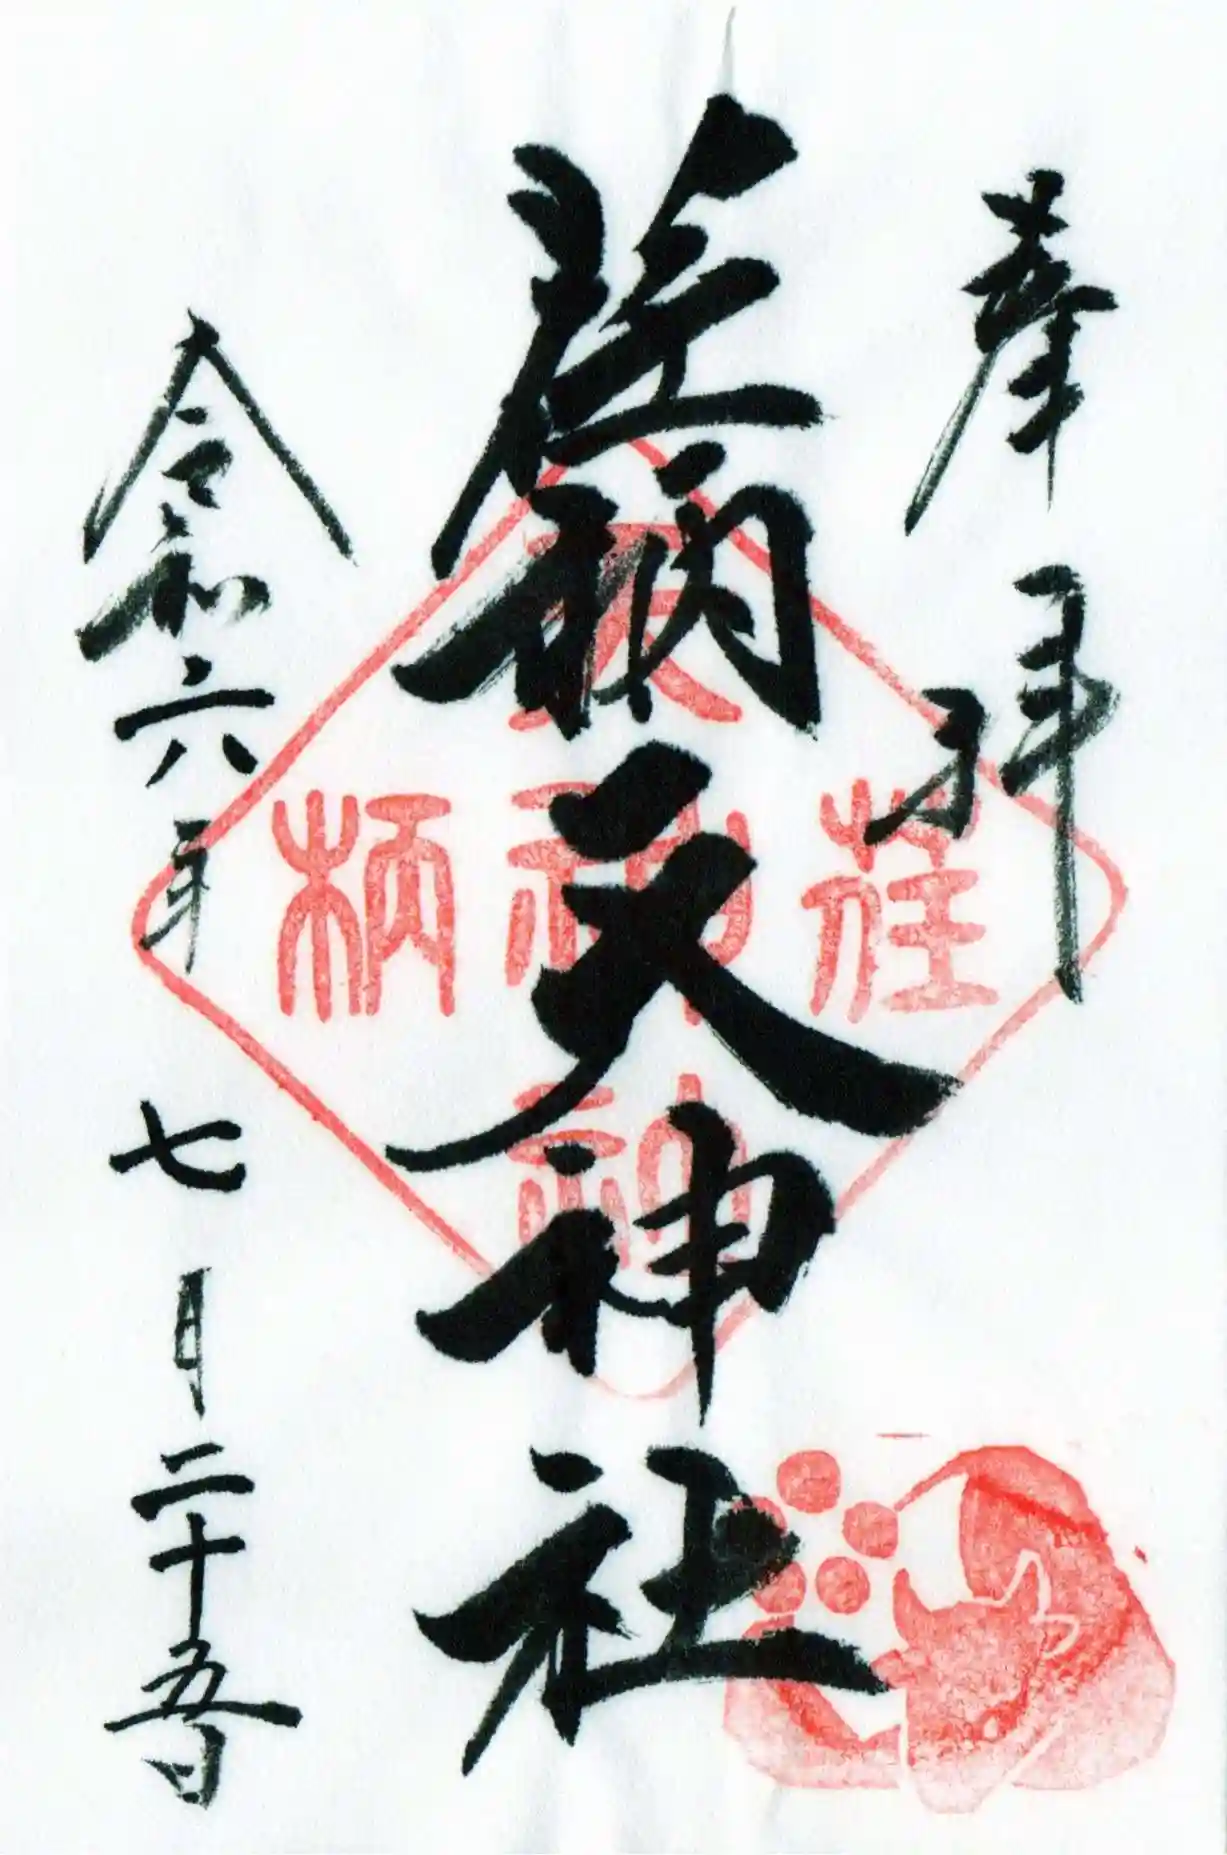 奉拝
荏柄天神社
令和六年 七月二十五日
荏
天
神
社
柄